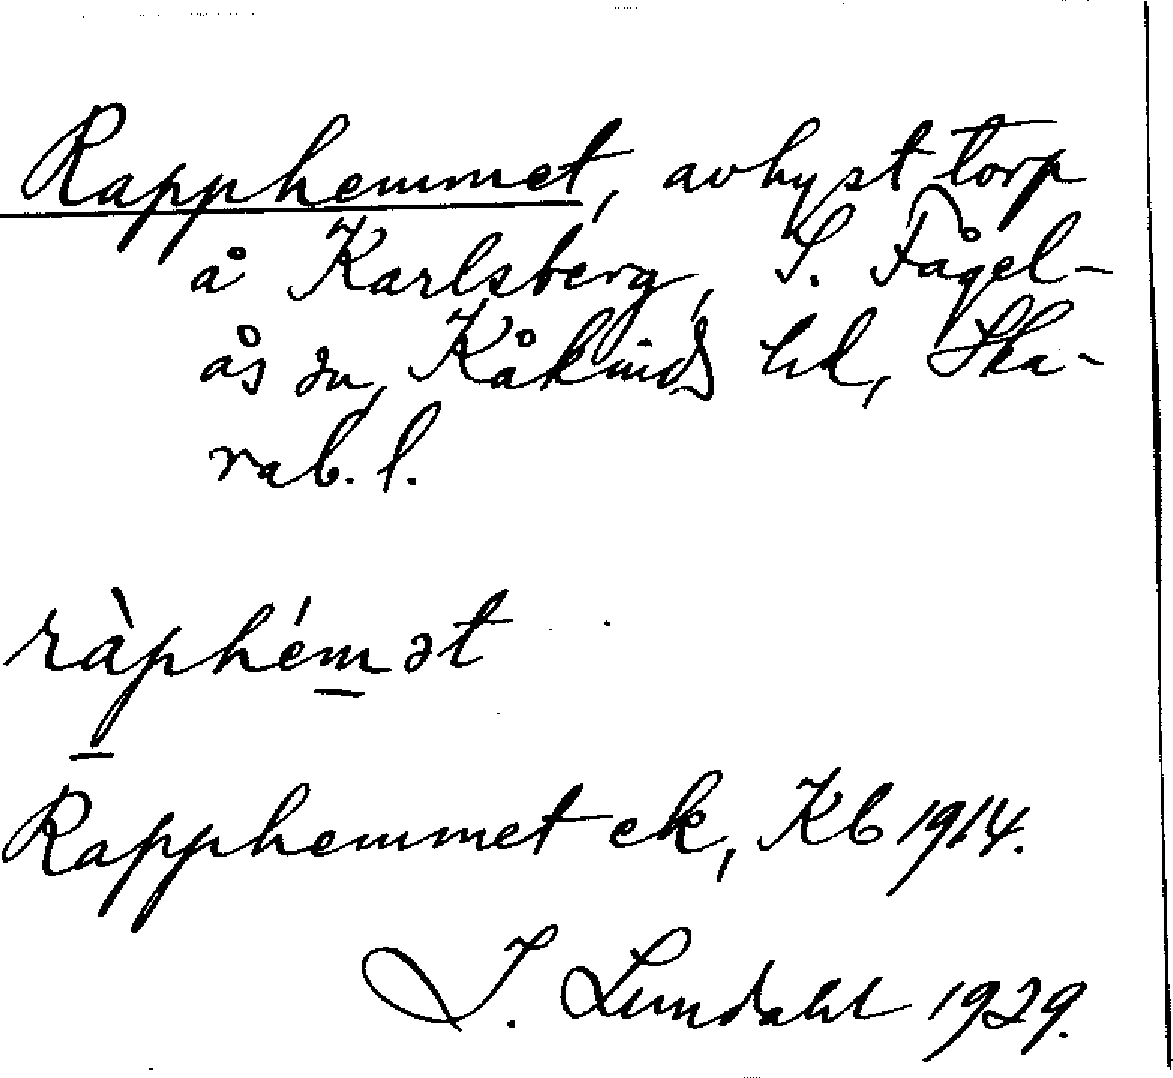 Rapphemmet, avhyst torp
å Karlsberg, S. Fågel-
ås sn, Kåkinds hd, Ska-
rab. l.
ràphémət
Rapphemmet ek, Kb 1914.
I. Lundahl 1929.